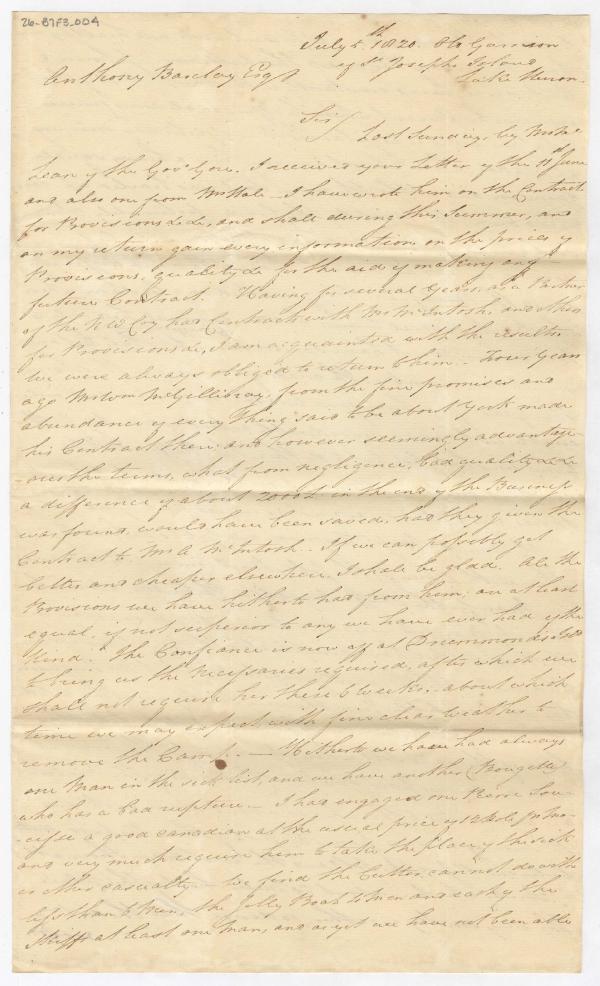 26-B7F3_004
July 5th 1820. Old Garrison
of St Josephs Island
Lake Huron.
Anthony Barclay Esqr
Sir/
Last Sunday, by Mr Mc
Lean of the Govr Gore. I received your Letter of the 11th June
and also one from Mr Hale - I have wrote him on the Contract
for Provisions &c &c, and shall during this Summer, and
on my return gain every information on the prices of
Provisions, quality &c for the aid of making any
future Contract. Having for several Years, as a Partner
of the N W Coy had Contracts with Mr McIntosh, and others
for Provisions &c, I am acquainted with the results
We were always obliged to return to him. - Four Years
ago Mr Wm McGillivray, from the fine promises and
abundance of every thing said to be about York made
his Contract there, and however seemingly advantage-
-ous the terms, what from negligence, bad quality &c &c
a difference of about 2000£ in the end of the Business
was found, would have been saved, had they given the
Contract to Mr A McIntosh. - If we can possibly get
better and cheaper elsewhere, I shall be glad. All the
Provisions we have hitherto had from him, are at least
equal, if not superior to any we have ever had of the
kind. The Confiance is now off at Drummonds Isld
to bring us the Necessaries required, after which we
shall not require her these 6 weeks, about which
time we may expect with fine clear weather to
remove the Camp. — Hitherto we have had always
one Man in the sick list, and we have another (Rougette)
who has a bad rupture. - I had engaged one Pierre Lou-
-cisse a good canadian at the usual price of 12 Dolls pr Mo-
and very much require him to take the place of the sick
or other casualty - We find the Cutter cannot do with
less than 6 Men, the Jolly Boat 4 Men and each of the
Skiffs at least one Man, and as yet we have not been able